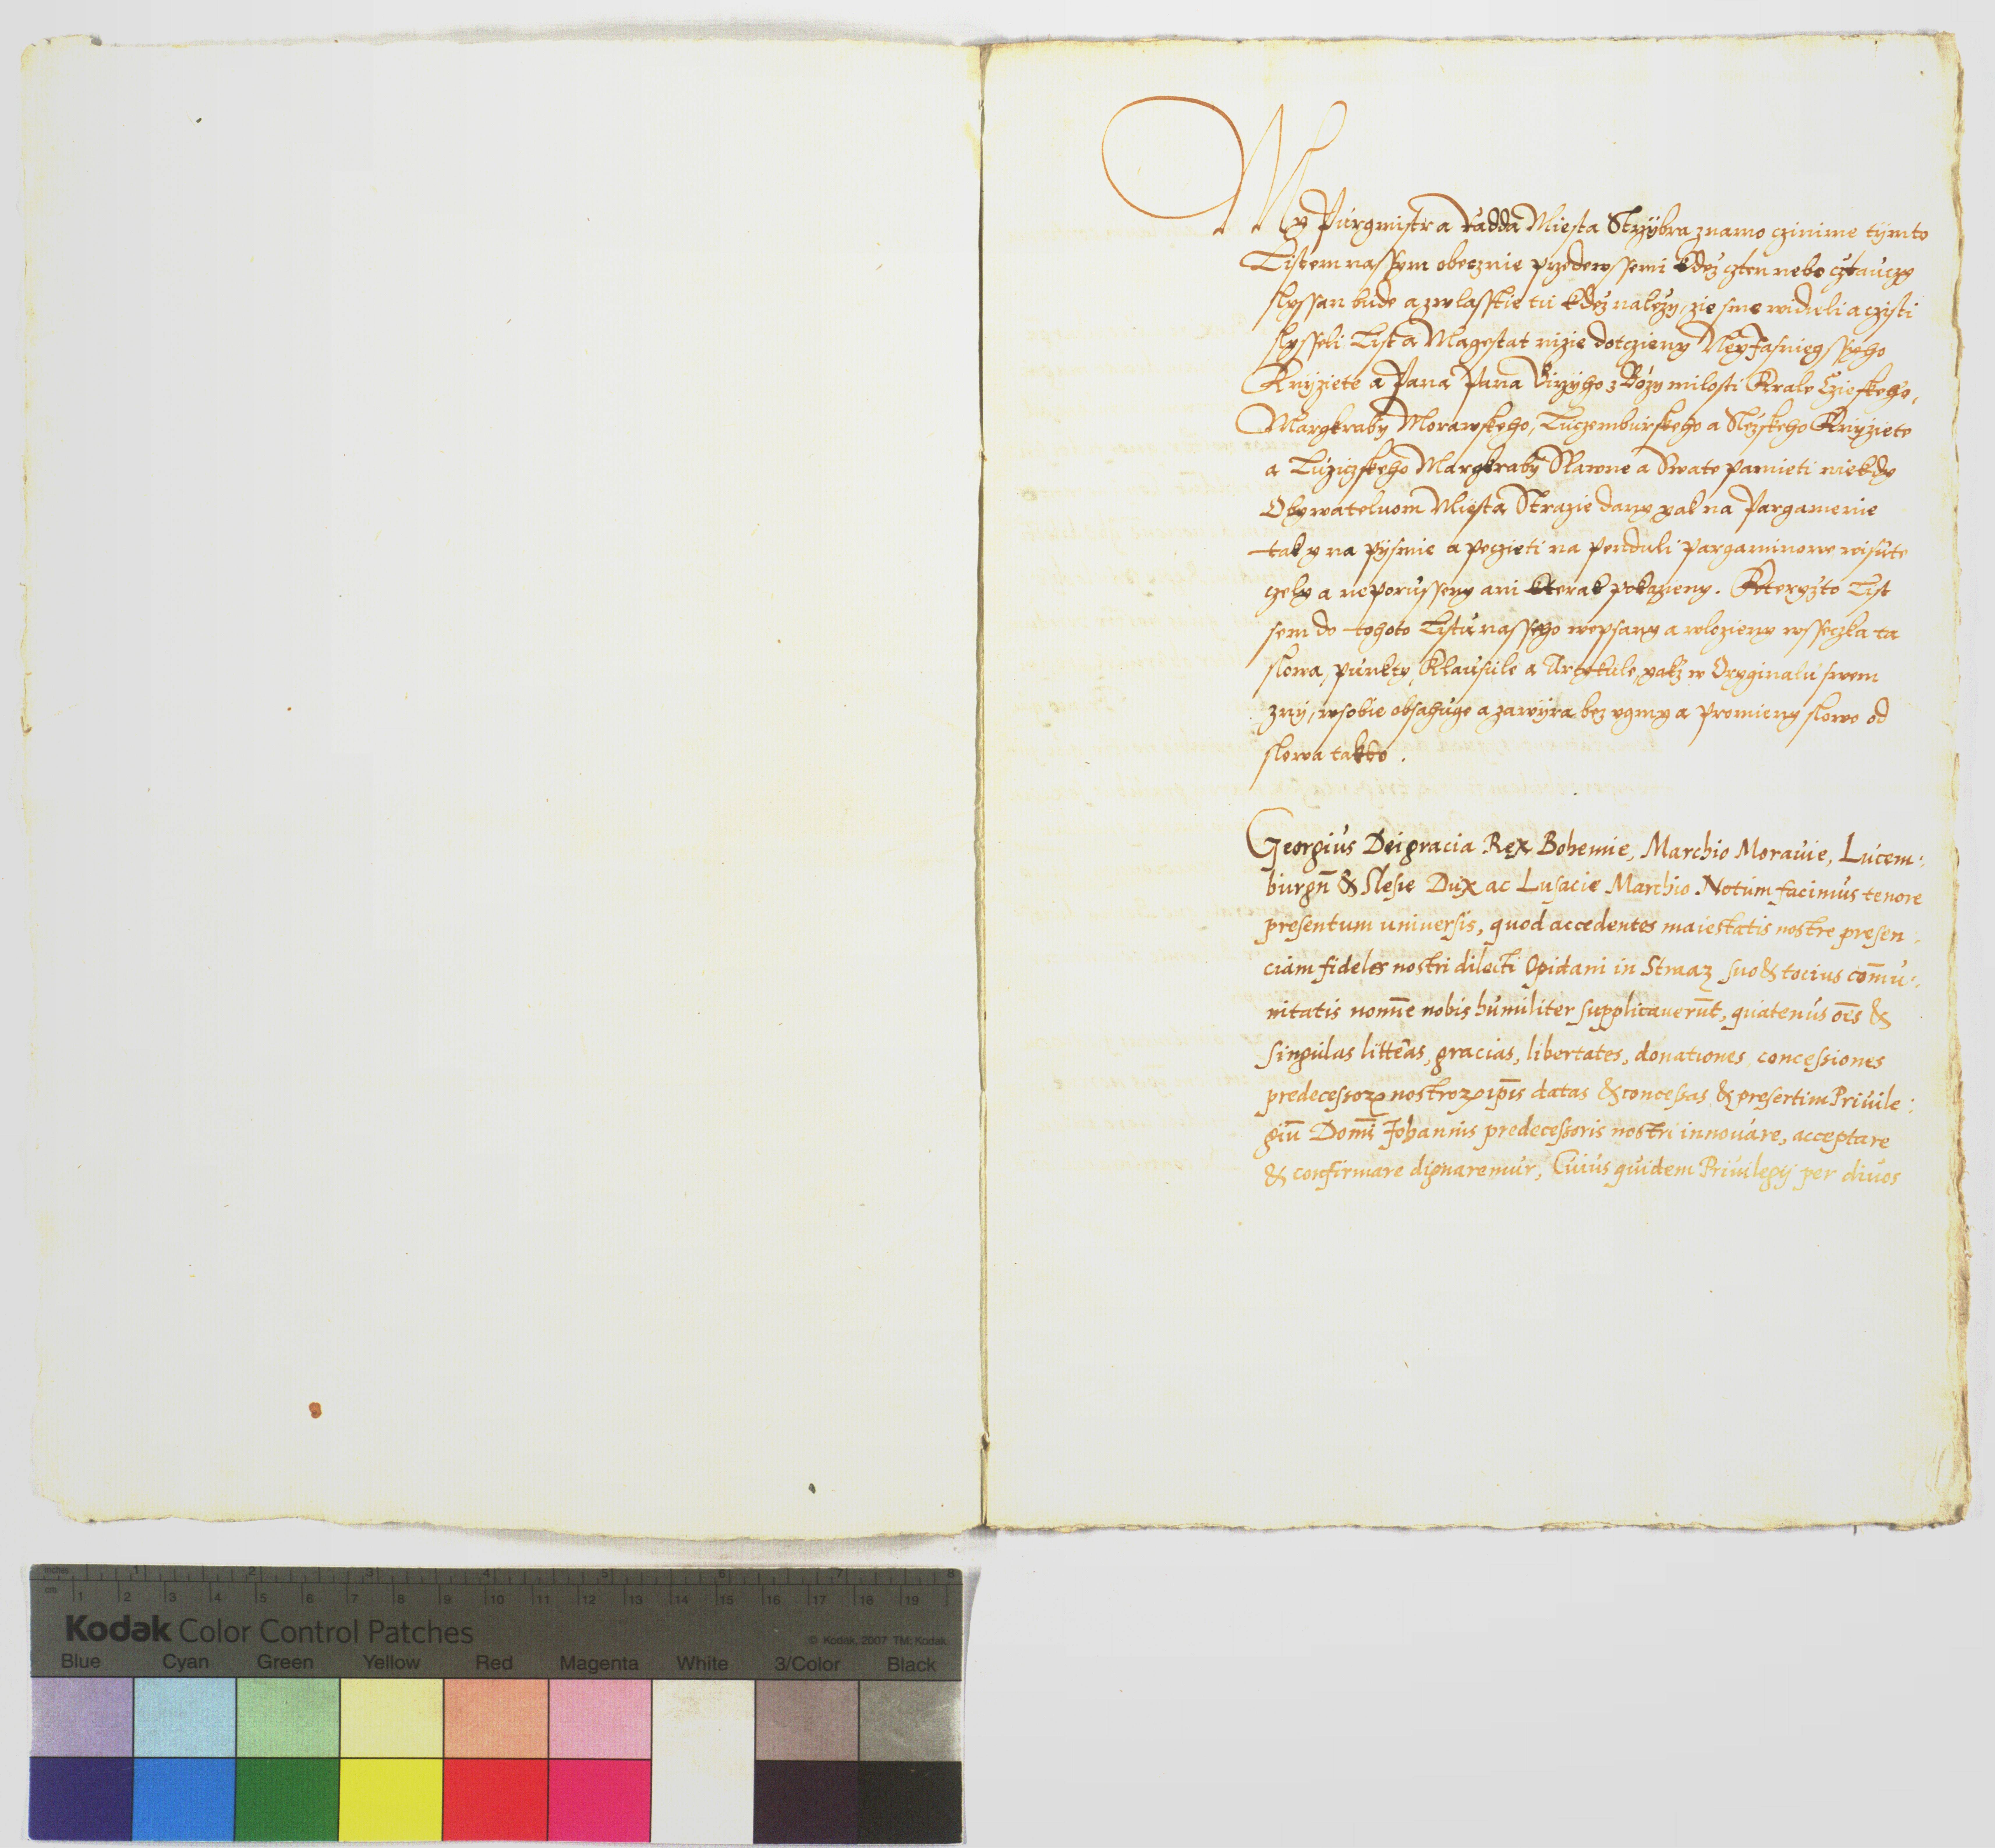 My Purgmistr a Radda Miesta Strzybra znamo czinime tijmto
Listem nassym obecznie przedewssemi kdez czten nebo cztauczy
slyssan bude a zwlasstie tu kdez nalezy, zie sme widieli a czisti
slysseli List a Magestat nizie dotczieny Neyjasniegssyho
Knijziete a Pana Pana Girzyho z Bozy milosti Krale Czieskeho,
Margkraby Morawskeho, Luczemburskeho a Slezskeho Knijziete
a Luziczskeho Margkraby Slawne a Swate pamieti niekdy
Obywateluom Miesta Strazie dany yak na Pargamenie
tak y na pijsmie a peczieti na penduli pargaminowe wisute
czely a neporusseny ani kterak pokazieny. Kteryzto List
sem do tohoto Listu nasseho wepsany a wlozieny wsseczka ta
slowa, punkty, Klausule a Artykule, yakz w Oryginalu swem
znij, w sobie obsahuge a zawijra bez ygmy a promieny slowo od
slowa takto.
Georgius Dei gracia Rex Bohemie, Marchio Moravie, Lucem:
burgn̄ & Slesie Dux ac Lusacie Marchio. Notum facimus tenore
presentum universis, quod accedentes maiestatis nostre presen:
ciam fideles nostri dilecti Opidani in Straaz suo & tocius com̄u:
nitatis nomīe nobis humiliter supplicauerūt, quatenus om̄s &
singulas litter̄as, gracias, libertates, donationes concessiones
predecessoꝝ nostroꝝ ip̄is datas & concessas & presertim Priuile:
giū Domi͞ Johannis predecessoris nostri innouare, acceptare
& confirmare dignaremur, Cuius quidem Priuilegij per diuos
inches 1 2 3 4 5 6 7 8
cm 1 2 3 4 5 6 7 8 9 10 11 12 13 14 15 16 17 18 19
Kodak Color Control Patches
© Kodak, 2007 TM: Kodak
Blue Cyan Green Yellow Red Magenta White 3/Color Black